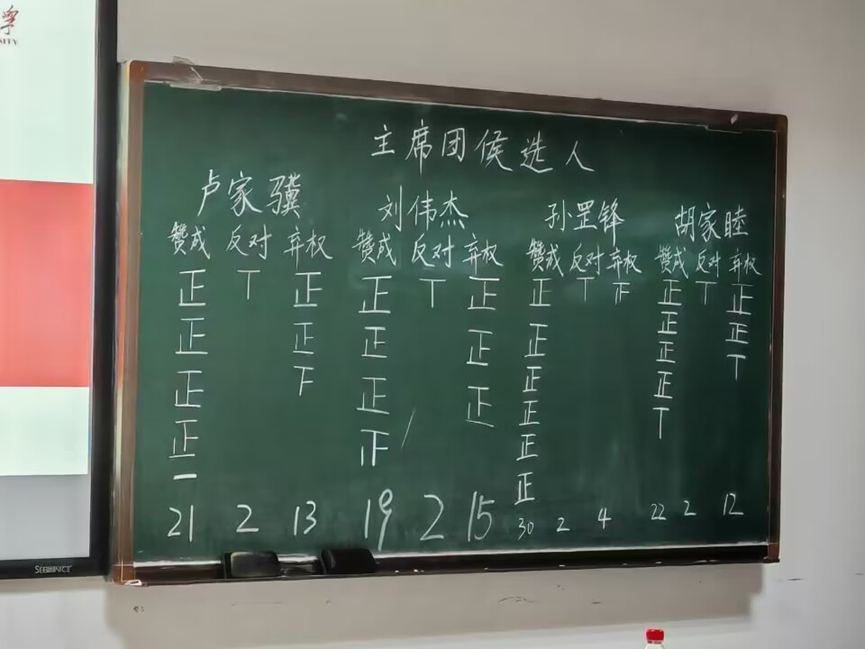 学
SITY
主席团候选人
卢家骥 刘伟杰 孙罡锋 胡家睦
赞成 反对 弃权 赞成 反对 弃权 赞成 反对 弃权 赞成 反对 弃权
正 丅 正 正 丅 正 正 丅 正 丅 正
正 正 正 正 正 正 正
正 下 正 正 正 正 丅
正 正 正 正
一 正 丅
正
21 2 13 19 2 15 30 2 4 22 2 12